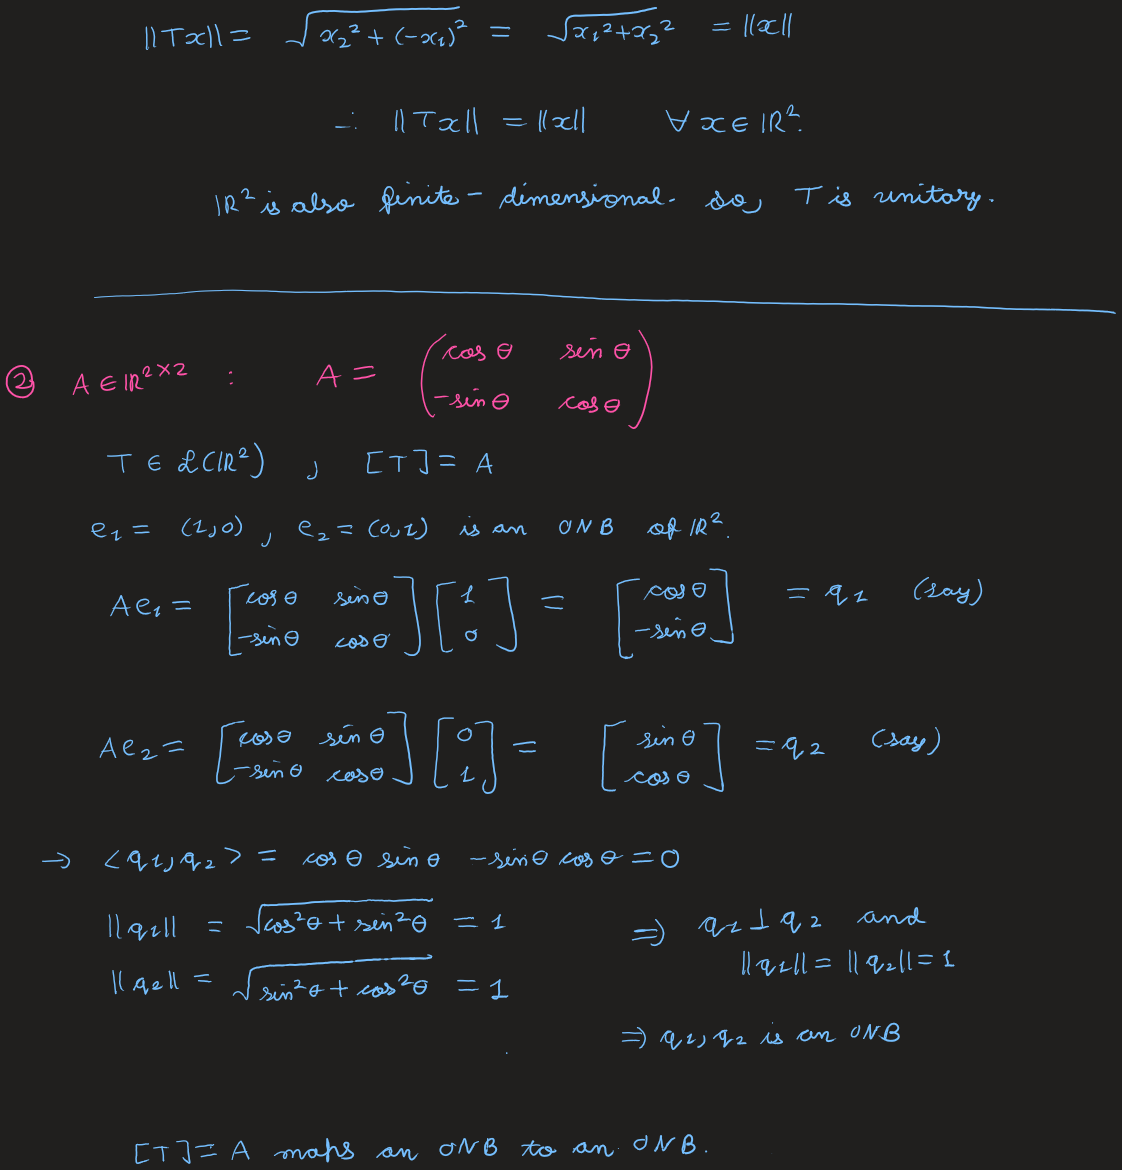 ||Tx|| = √(x₂² + (-x₁)²) = √(x₁² + x₂²) = ||x||
∴ ||Tx|| = ||x|| ∀ x ∈ ℝ².
ℝ² is also finite-dimensional. So, T is unitary.
② A ∈ ℝ²ˣ² : A = (cos θ sin θ
-sin θ cos θ)
T ∈ ℒ(ℝ²) , [T] = A
e₁ = (1,0) , e₂ = (0,1) is an ONB of ℝ².
Ae₁ = [cos θ sin θ; -sin θ cos θ] [1; 0] = [cos θ; -sin θ] = q₁ (say)
Ae₂ = [cos θ sin θ; -sin θ cos θ] [0; 1] = [sin θ; cos θ] = q₂ (say)
→ <q₁, q₂> = cos θ sin θ - sin θ cos θ = 0
||q₁|| = √(cos²θ + sin²θ) = 1
||q₂|| = √(sin²θ + cos²θ) = 1
⇒ q₁ ⊥ q₂ and
||q₁|| = ||q₂|| = 1
⇒ q₁, q₂ is an ONB
[T] = A maps an ONB to an ONB.